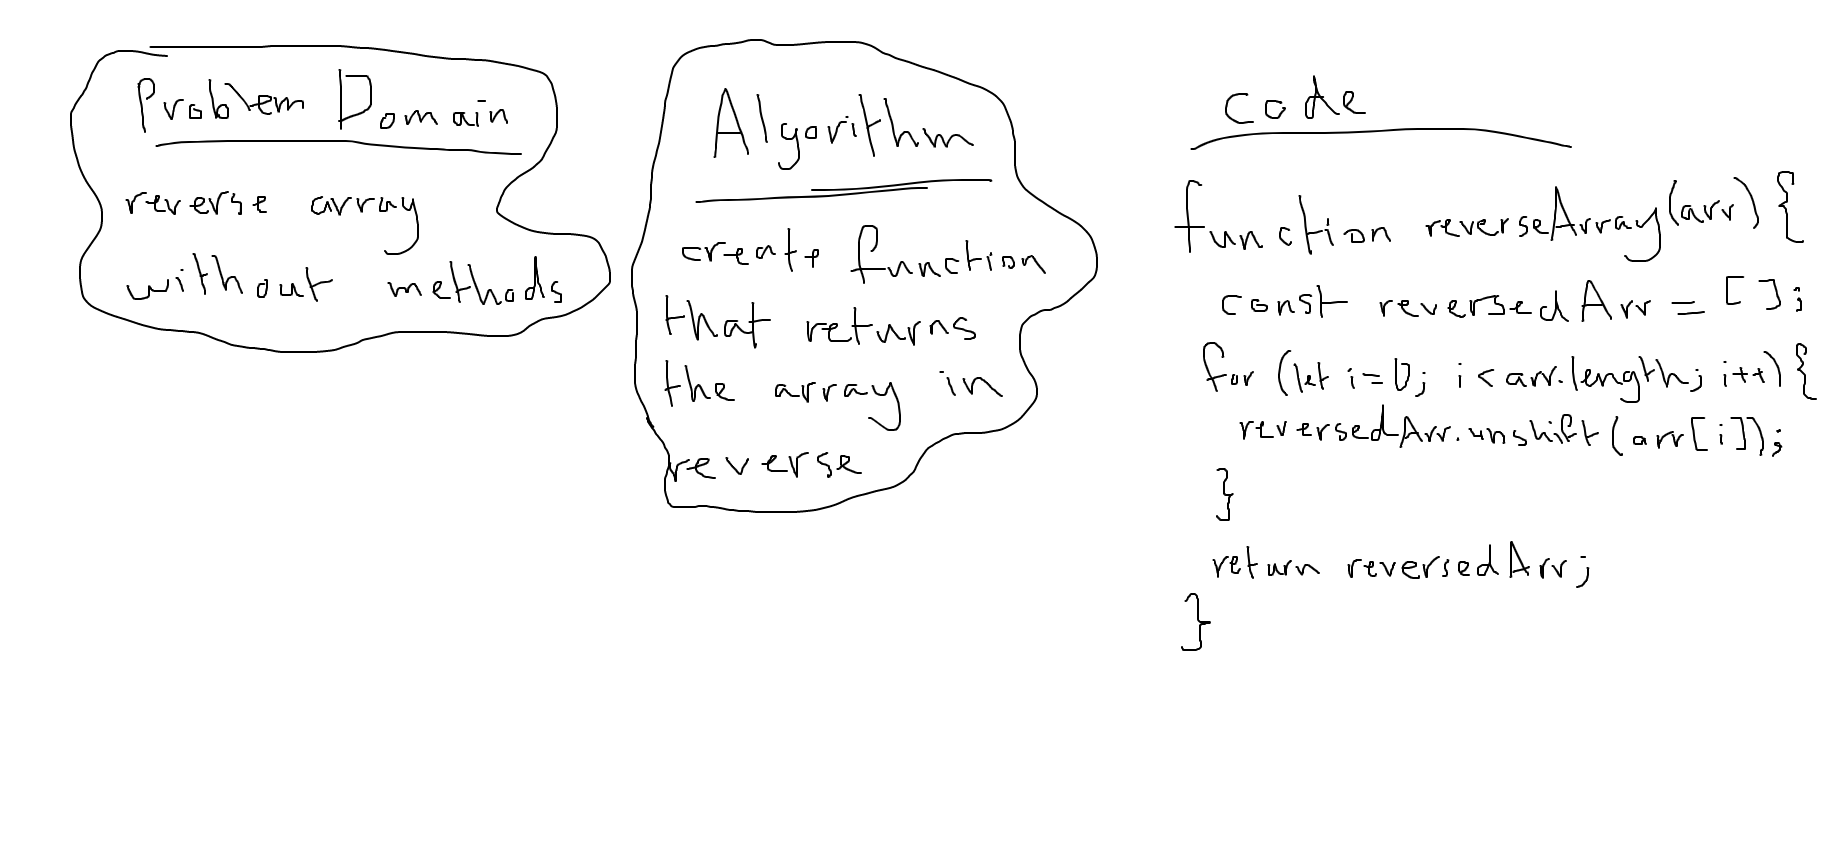 Problem Domain
reverse array
without methods
Algorithm
create function
that returns
the array in
reverse
code
function reverseArray(arr) {
const reversedArr = [];
for (let i=0; i < arr.length; i++) {
reversedArr.unshift(arr[i]);
}
return reversedArr;
}